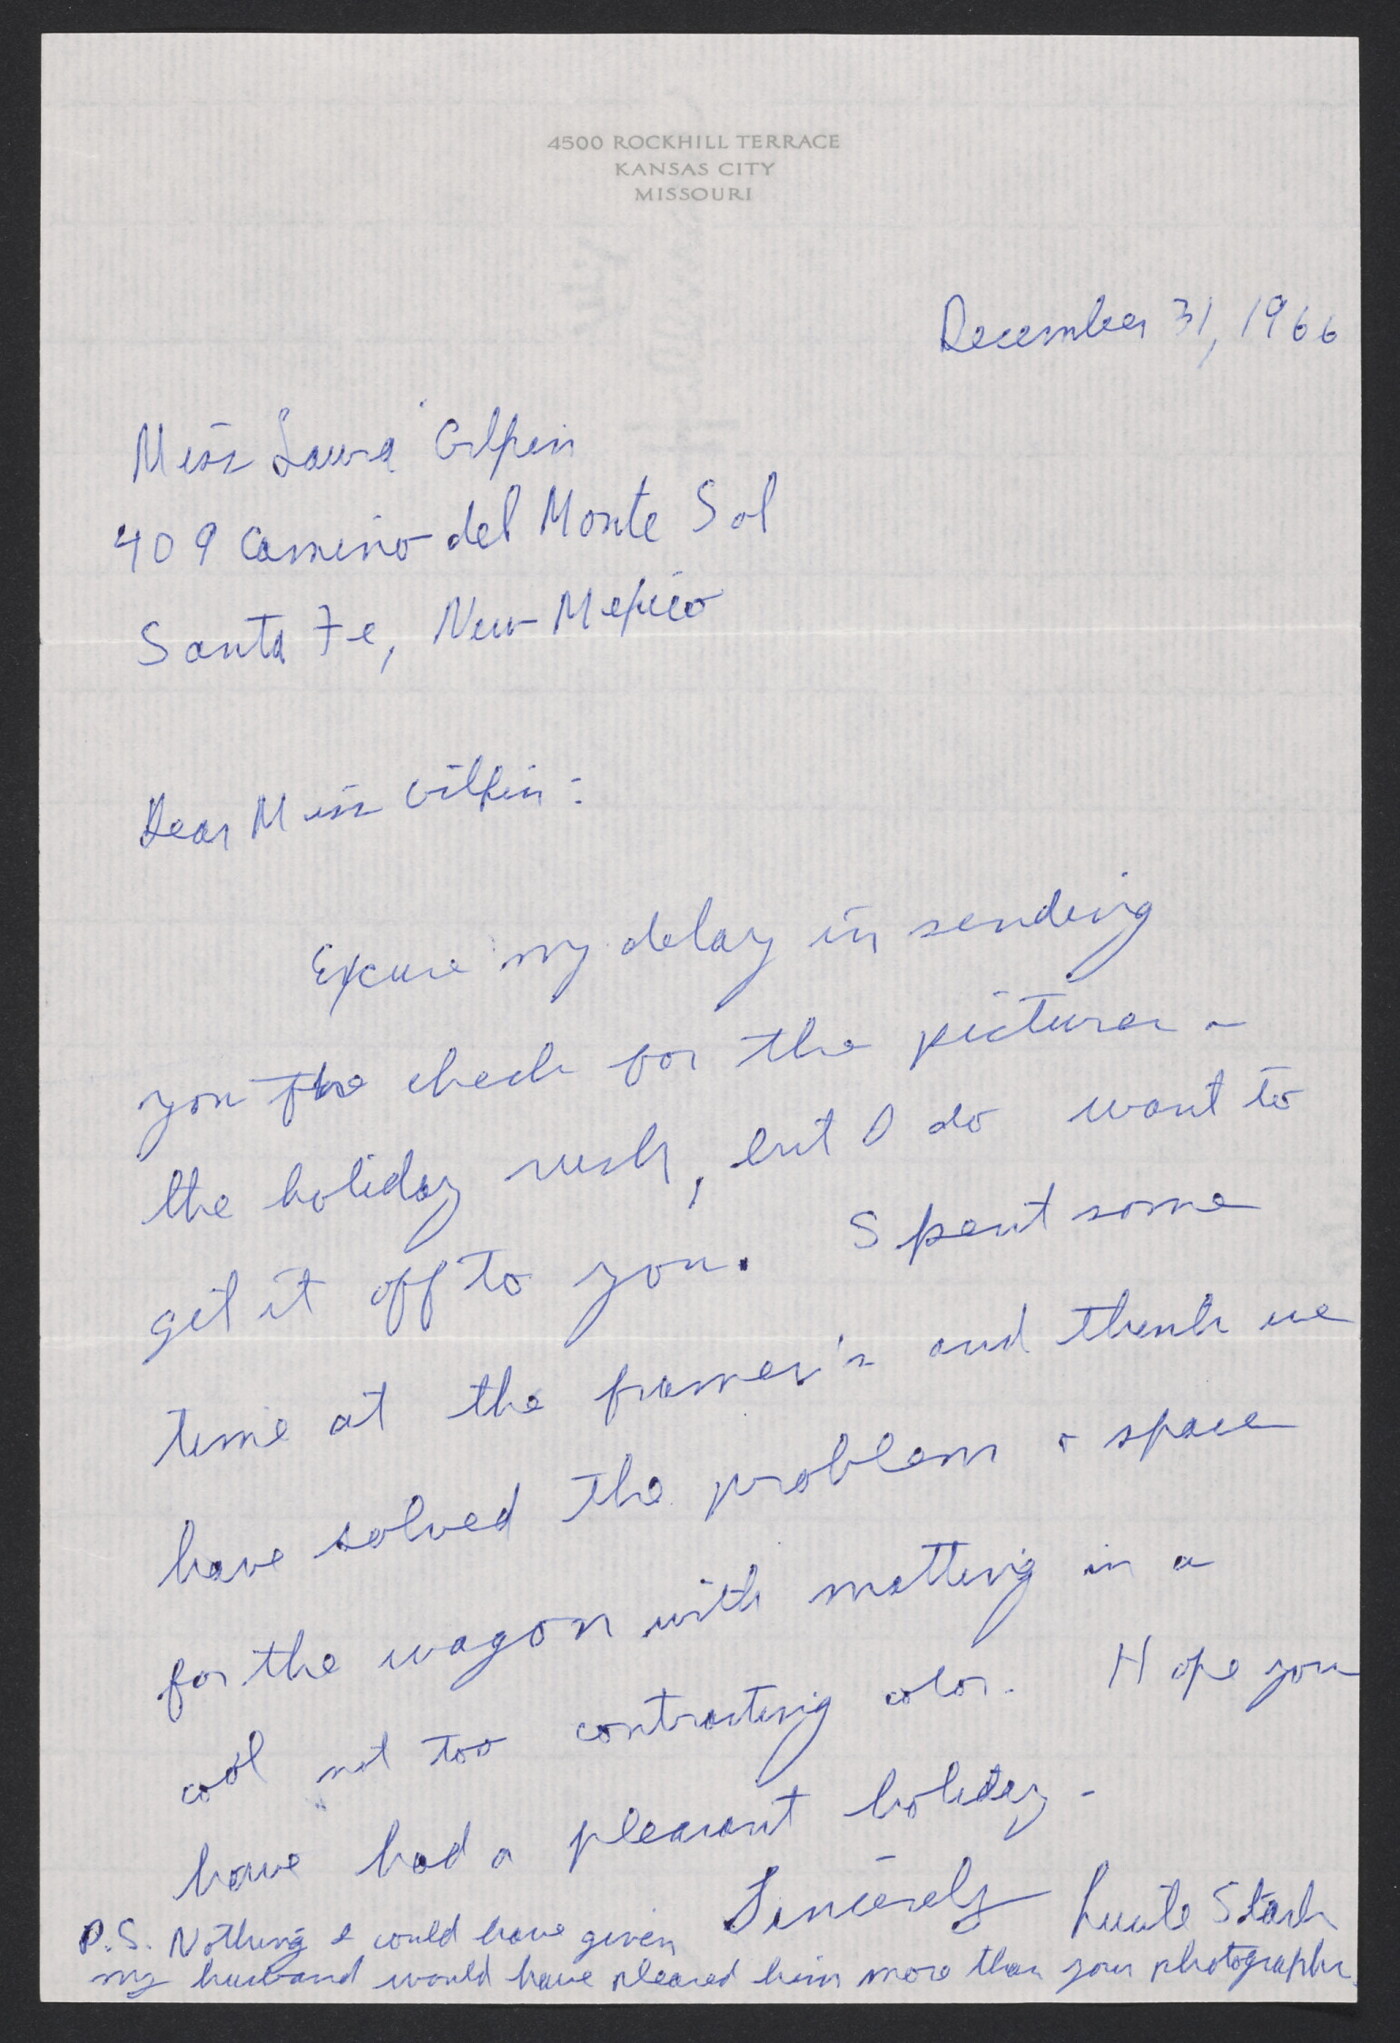 4500 ROCKHILL TERRACE
KANSAS CITY
MISSOURI
December 31, 1966
Miss Laura Gilpin
409 Camino del Monte Sol
Santa Fe, New Mexico
Dear Miss Gilpin:
Excuse my delay in sending
you the check for the pictures -
the holiday rush, but I do want to
get it off to you. Spent some
time at the framer's and think we
have solved the problem & space
for the wagon with matting in a
cool not too contrasting color. Hope you
have had a pleasant holiday -
Sincerely Lucile Stark
P.S. Nothing I could have given
my husband would have pleased him more than your photographs.